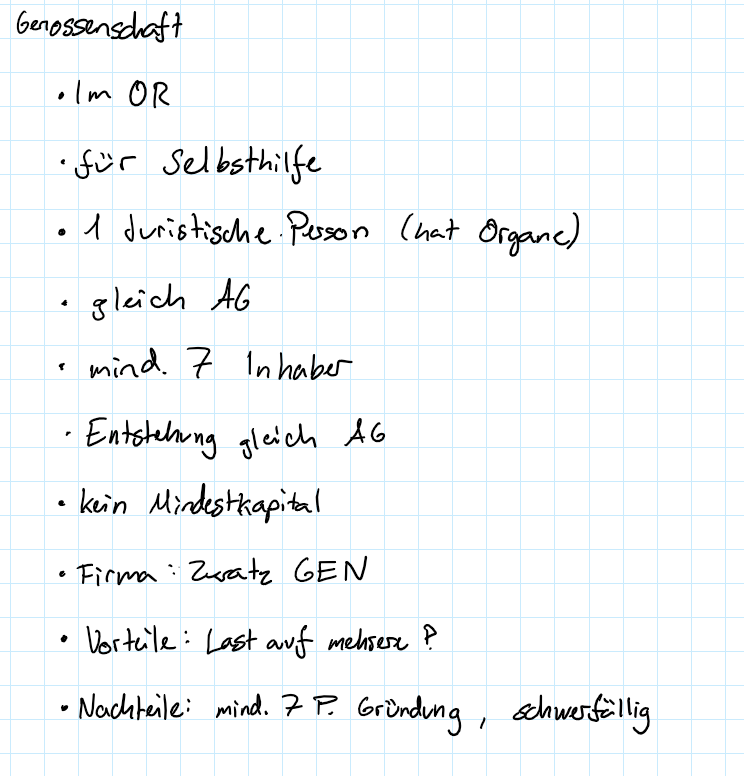 Genossenschaft
• Im OR
• für Selbsthilfe
• 1 Juristische Person (hat Organe)
• gleich AG
• mind. 7 Inhaber
• Entstehung gleich AG
• kein Mindestkapital
• Firma: Zusatz GEN
• Vorteile: Last auf mehrere P.
• Nachteile: mind. 7 P. Gründung, schwerfällig